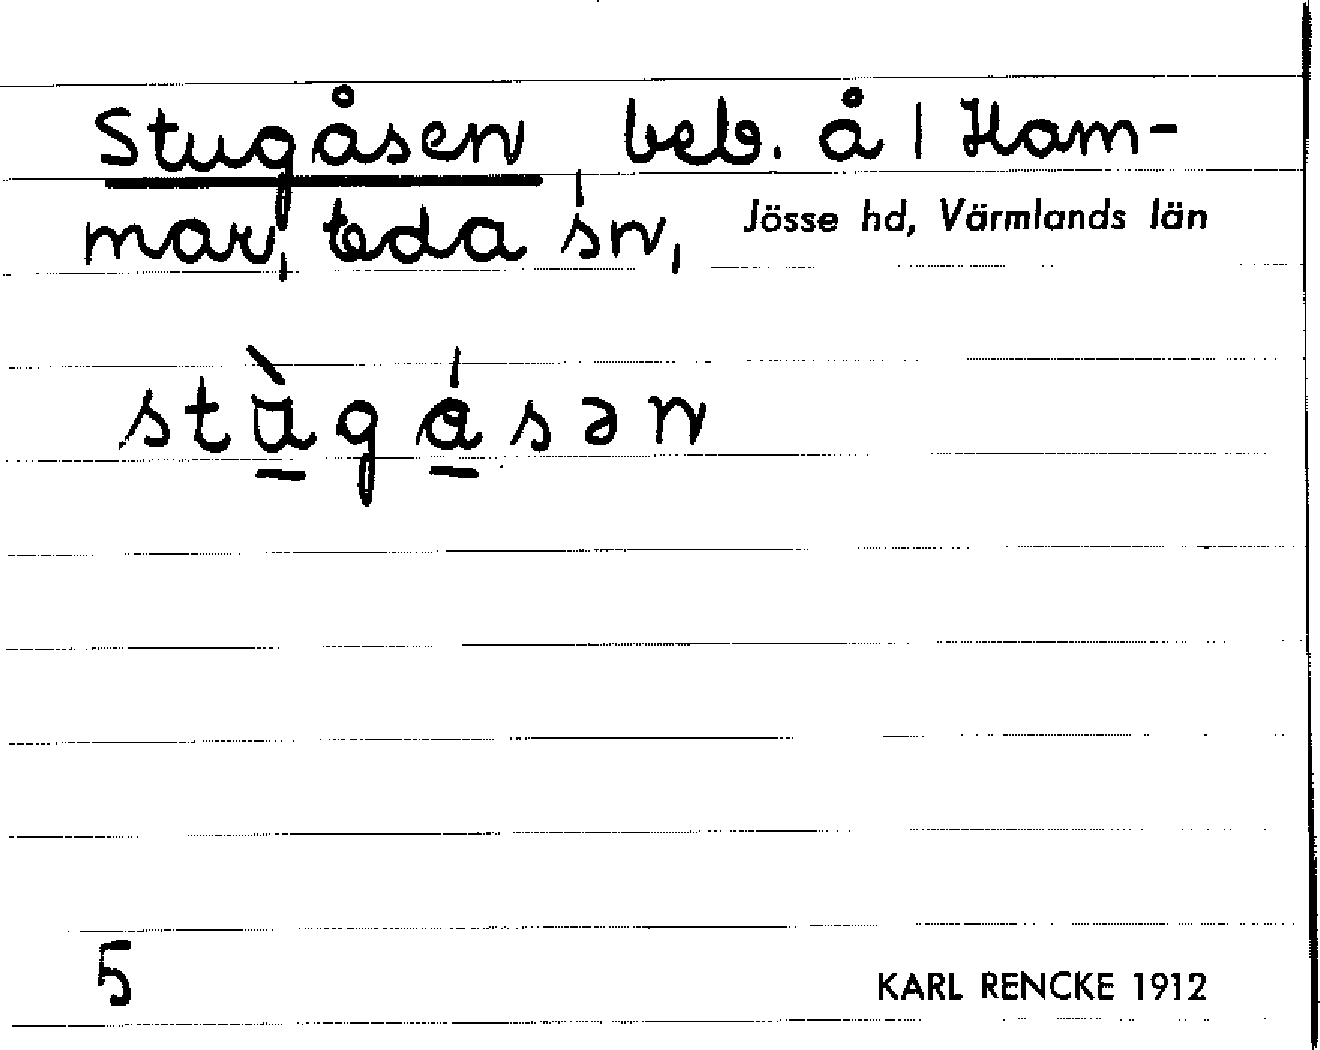 Stugåsen, beb. å 1 Ham-
mar, Eda sn, Jösse hd, Värmlands län
stù̲gá̲sən
5
KARL RENCKE 1912